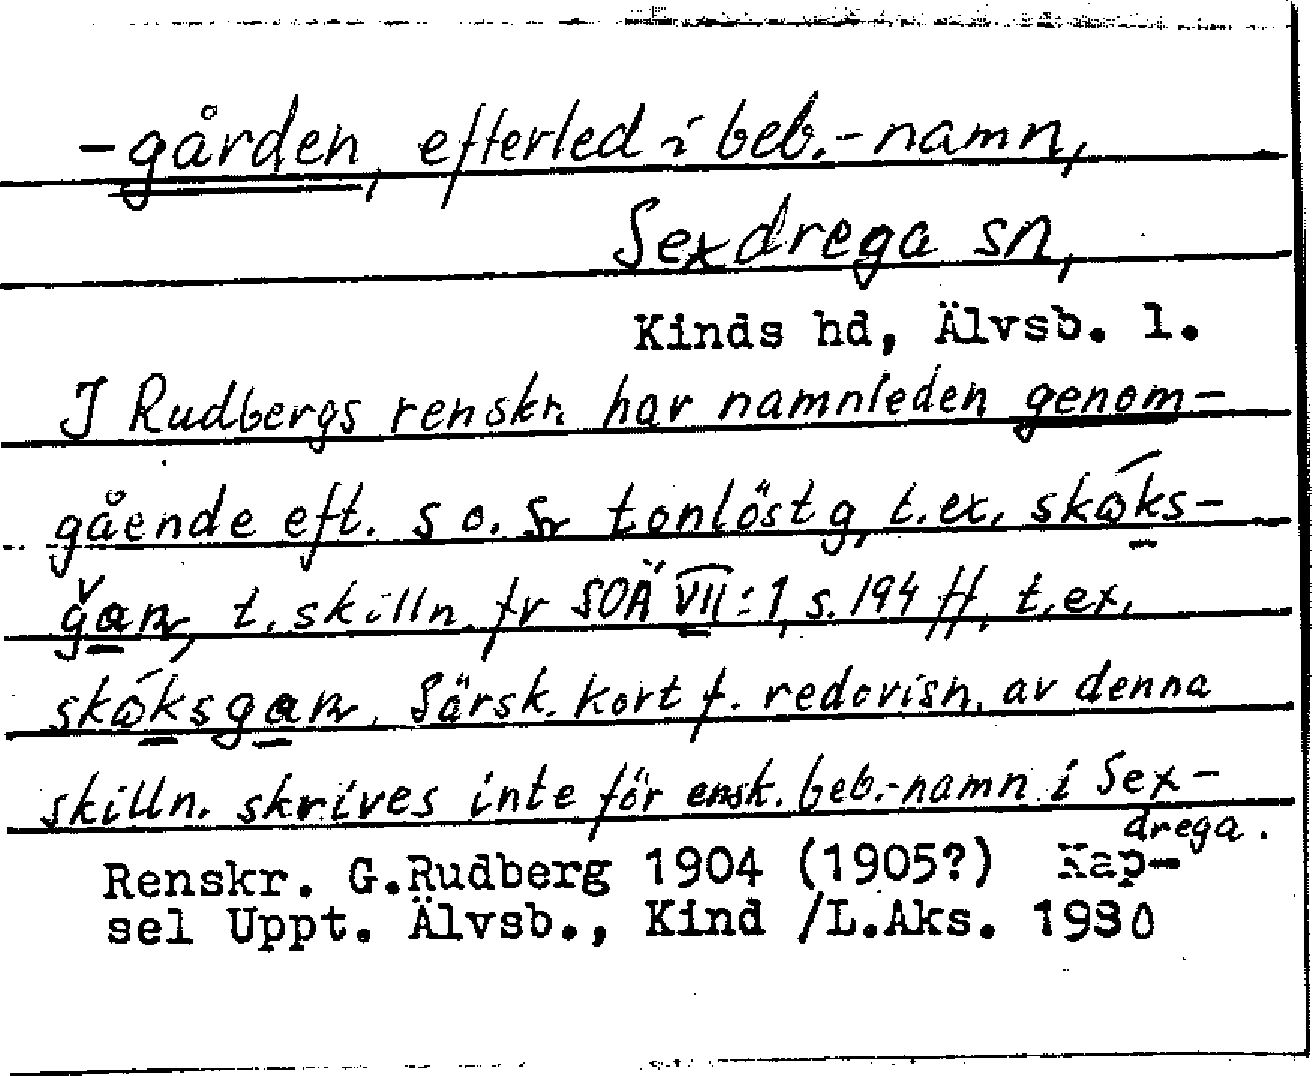 -gården, efterled i beb.-namn,
Sexdrega sn,
Kinds hd, Älvsb. l.
I Rudbergs renskr. har namnleden genom-
gående eft. s o. sr tonlöst g, t.ex. skǿks-
ǧan, t. skilln. fr SOÄ VII:1, s. 194 ff. t.ex.
skǿksgan. Särsk. kort f. redovisn. av denna
skilln. skrives inte för ensk. beb.-namn i Sex-
drega.
Renskr. G.Rudberg 1904 (1905?) Kap-
sel Uppt. Älvsb., Kind /L.Aks. 1980